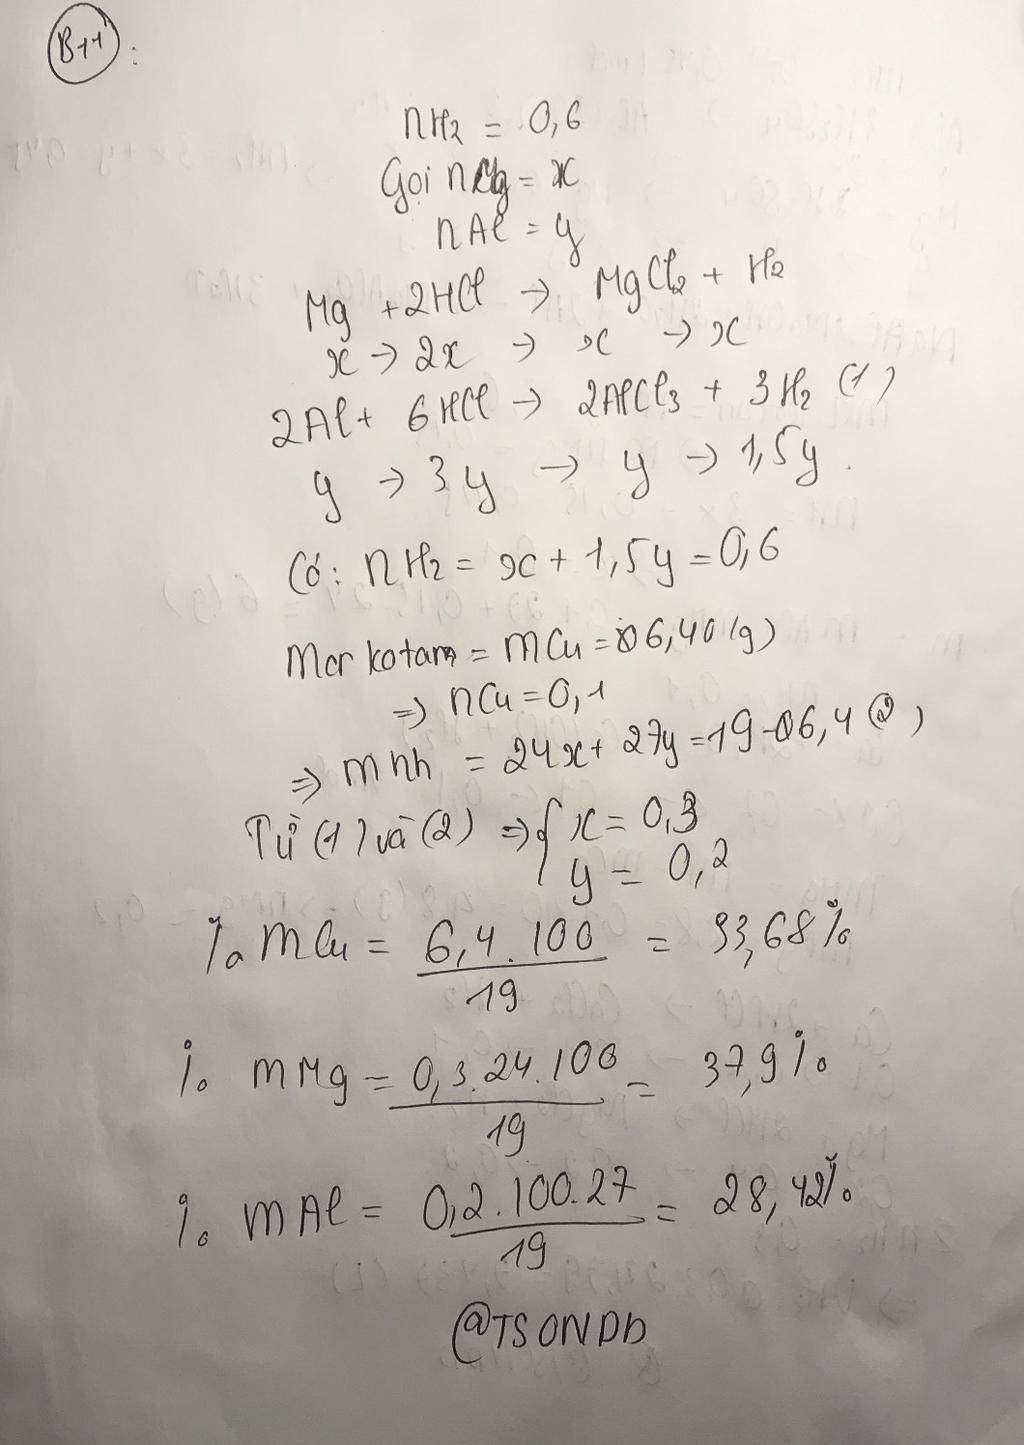 B11 :
nH2 = 0,6
Gọi nMg = x
nAl = y
Mg + 2HCl → MgCl2 + H2
x → 2x → x → x
2Al + 6HCl → 2AlCl3 + 3H2 (1)
y → 3y → y → 1,5y.
Có: nH2 = x + 1,5y = 0,6
Mcr kotam = mCu = 6,40 (g)
⇒ nCu = 0,1
⇒ mhh = 24x + 27y = 19 - 6,4 (2)
Từ (1) và (2) ⇒ { x = 0,3
y = 0,2
% mCu = 6,4 . 100 / 19 = 33,68%
% mMg = 0,3.24.100 / 19 = 37,9%
% mAl = 0,2.100.27 / 19 = 28,42%
@TSONDD